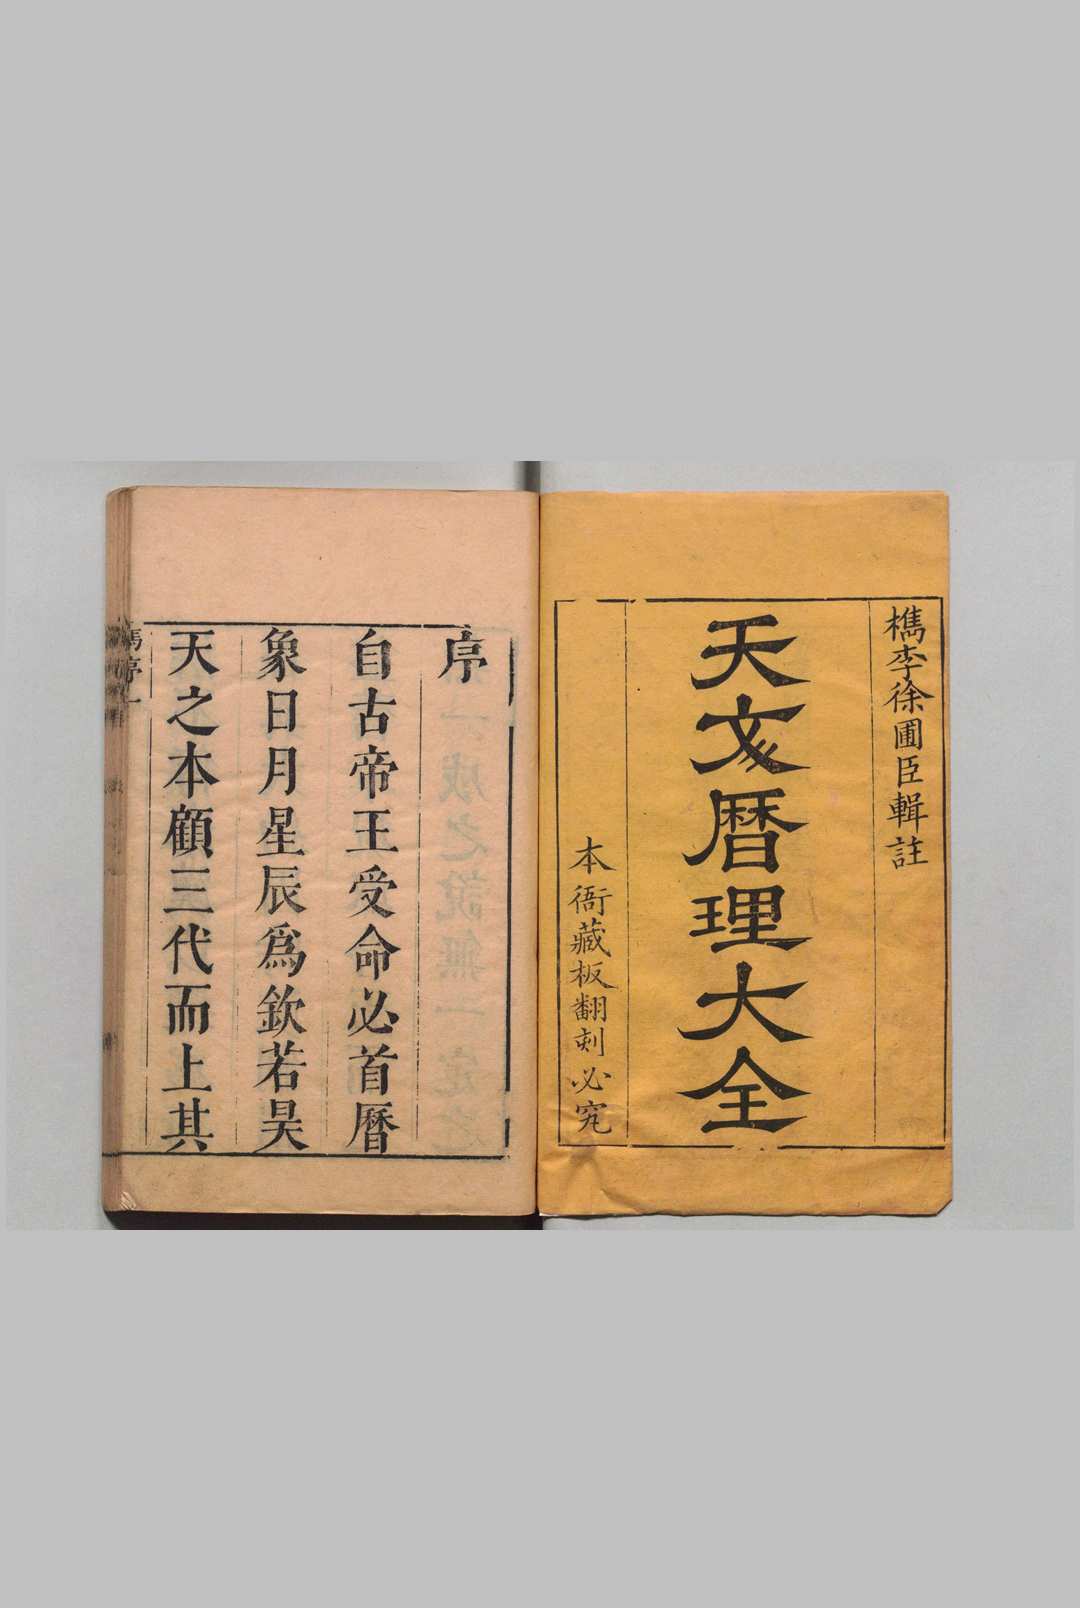 檇李徐圃臣輯註
天文曆理大全
本衙藏板翻刻必究
序
自古帝王受命必首曆
象日月星辰爲欽若昊
天之本顧三代而上其
馮序一